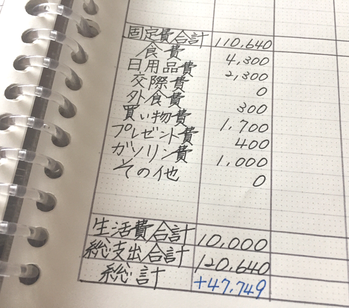 固定費合計 110,640
食費 4,300
日用品費 2,300
交際費 0
外食費 300
買い物費 1,700
プレゼント費 400
ガソリン費 1,000
その他 0
生活費合計 10,000
総支出合計 120,640
総計 +47,749